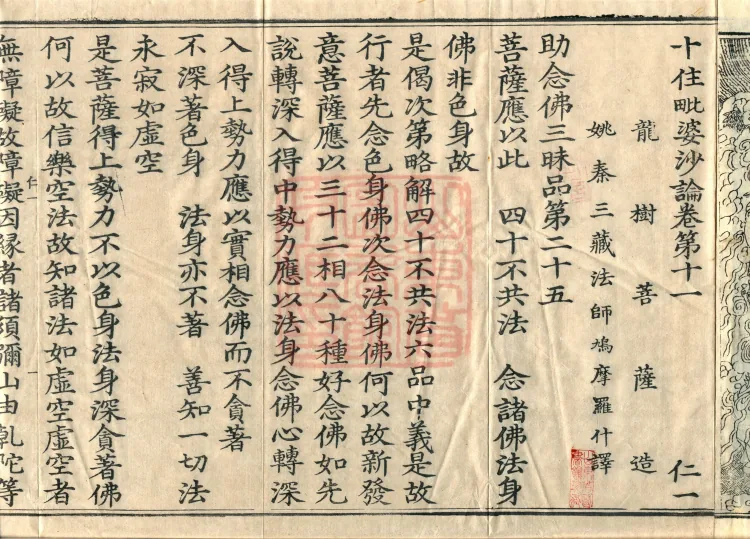 十住毗婆沙論卷第十一 仁一
龍樹菩薩造
姚秦三藏法師鳩摩羅什譯
助念佛三昧品第二十五
菩薩應以此 四十不共法 念諸佛法身
佛非色身故
是偈次第略解四十不共法六品中義是故
行者先念色身佛次念法身佛何以故新發
意菩薩應以三十二相八十種好念佛如先
說轉深入得中勢力應以法身念佛心轉深
入得上勢力應以實相念佛而不貪著
不深著色身 法身亦不著 善知一切法
永寂如虛空
是菩薩得上勢力不以色身法身深貪著佛
何以故信樂空法故知諸法如虛空虛空者
仁一 一
無障礙故障礙因緣者諸須彌山由乾陀等